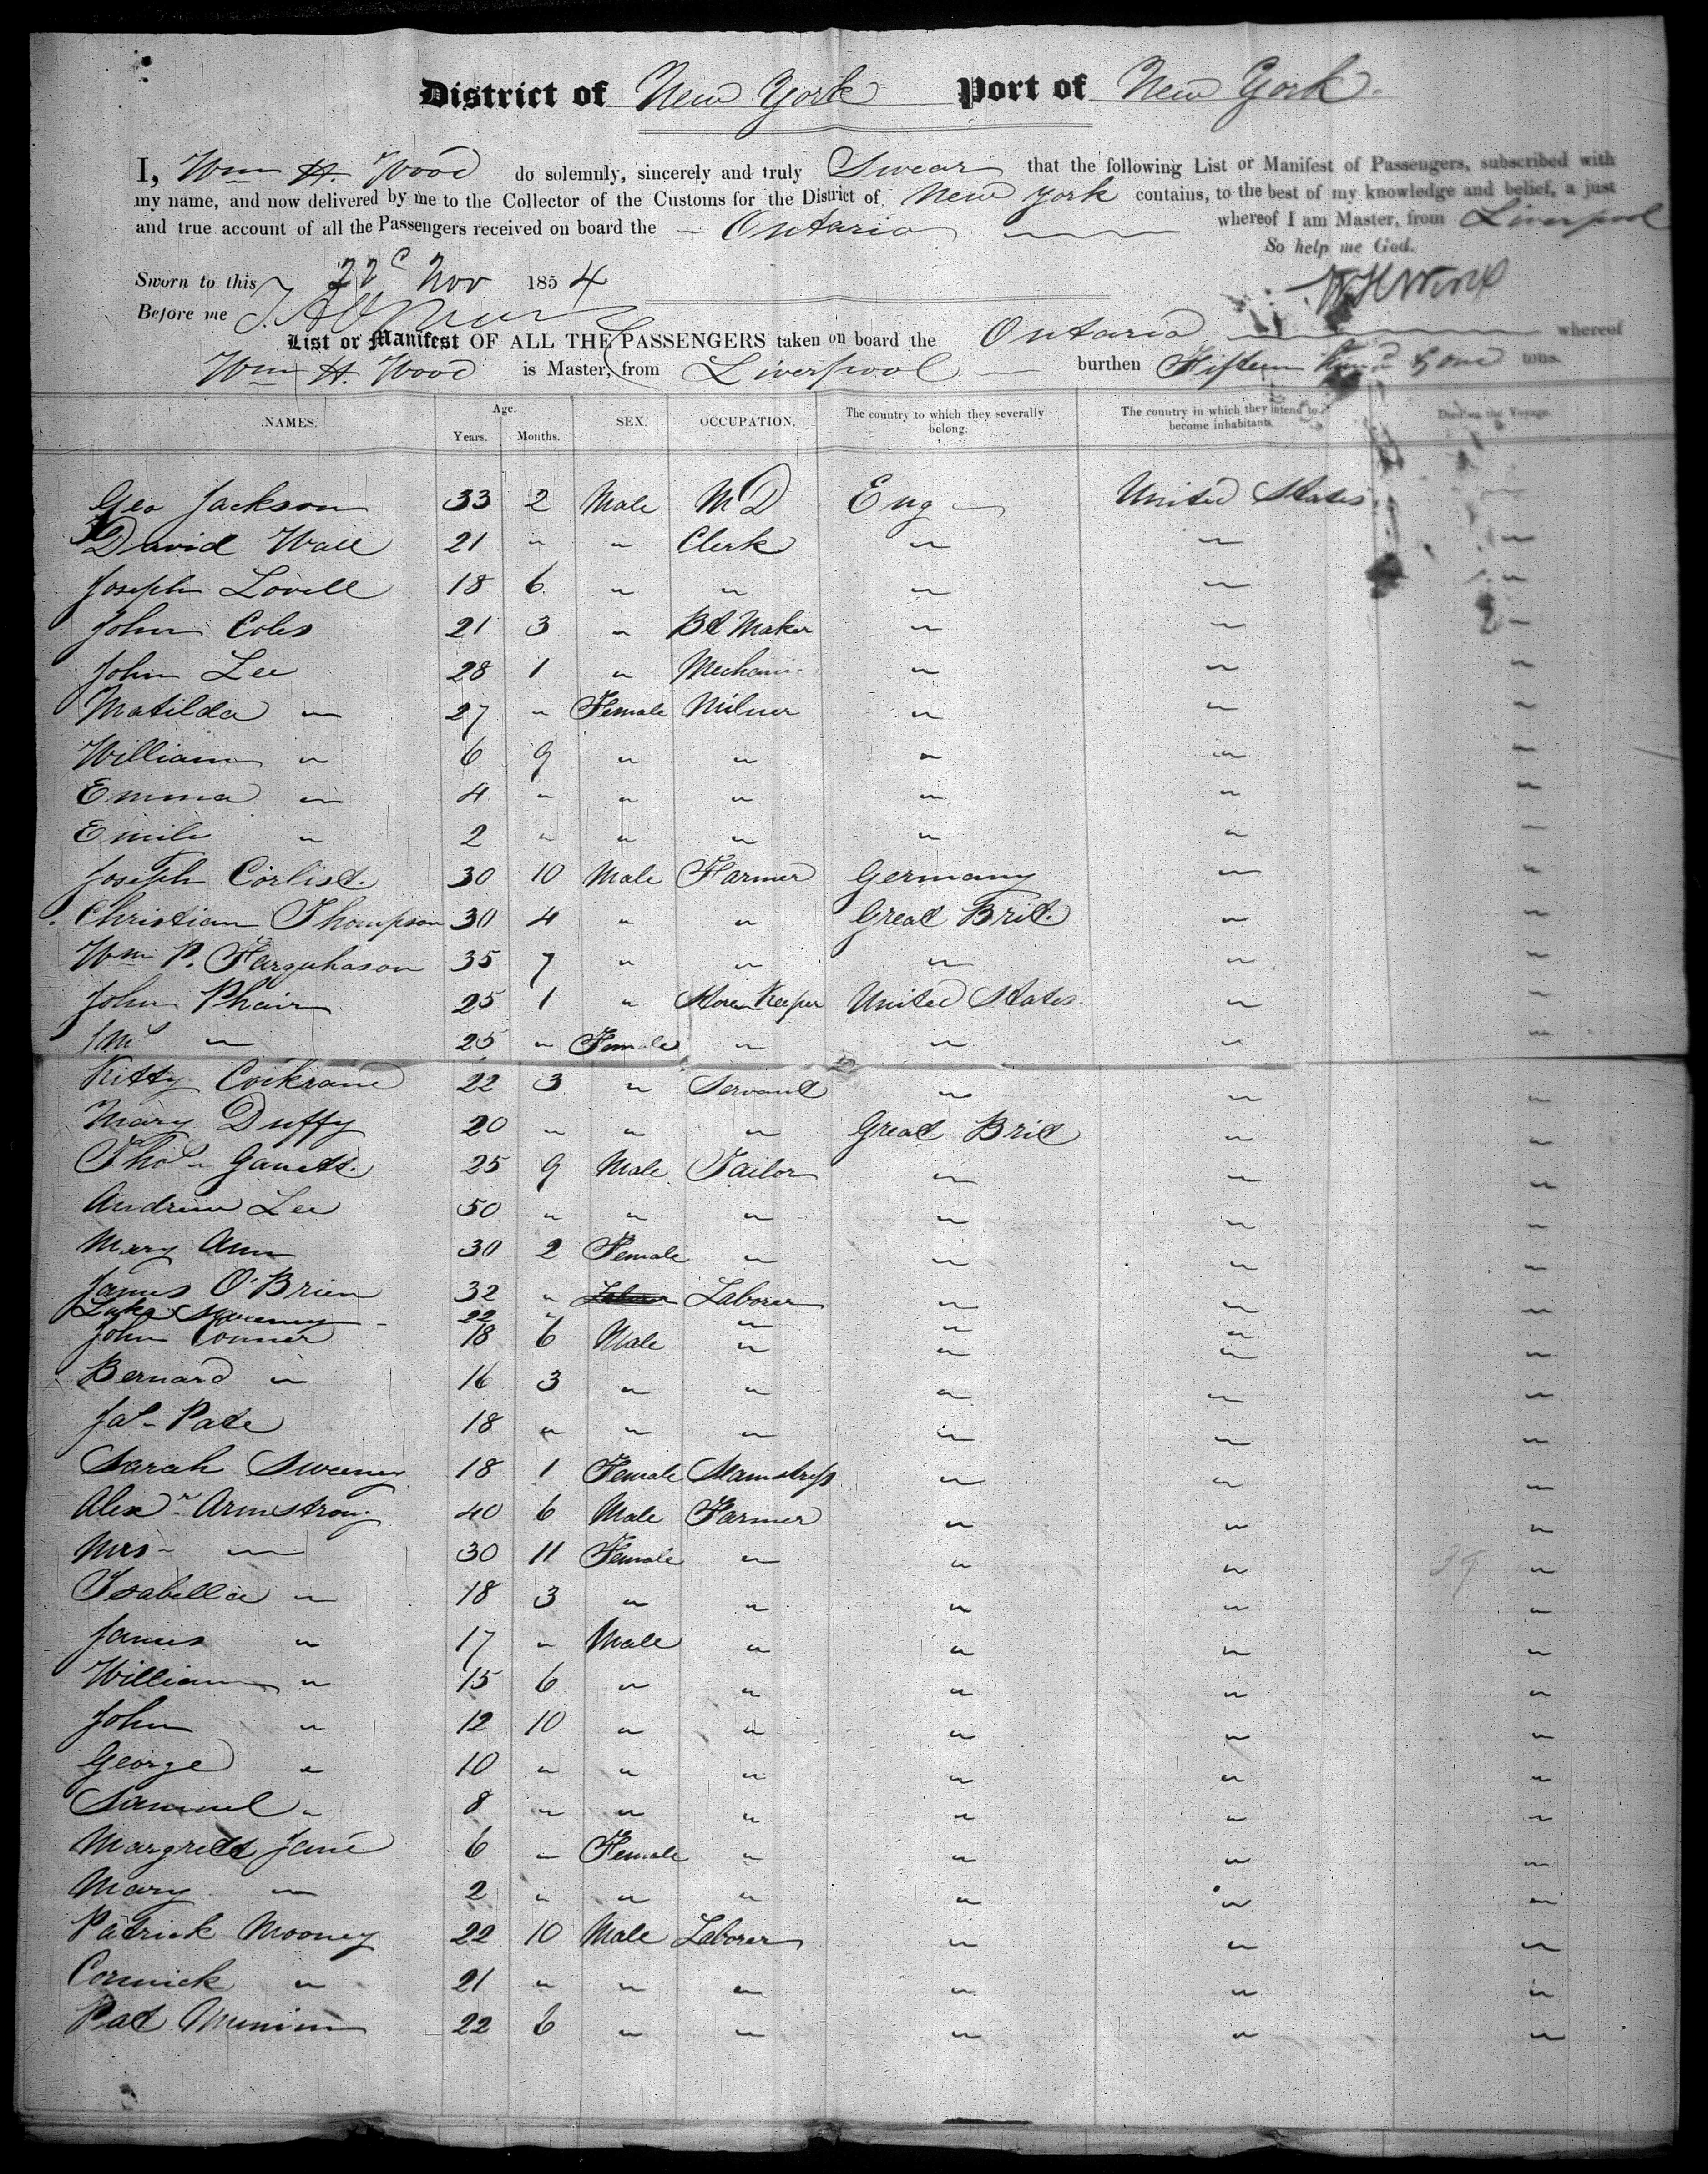 District of New York Port of New York.
I, Wm H. Wood do solemnly, sincerely and truly Swear that the following List or Manifest of Passengers, subscribed with
my name, and now delivered by me to the Collector of the Customs for the District of New York contains, to the best of my knowledge and belief, a just
and true account of all the Passengers received on board the Ontario whereof I am Master, from Liverpool
So help me God.
Sworn to this 22d Nov 1854 W H Wood
Before me
List or Manifest OF ALL THE PASSENGERS taken on board the Ontario whereof
Wm H. Wood is Master, from Liverpool burthen Fifteen Hund & one tons.
NAMES. Age. Years. Months. SEX. OCCUPATION. The country to which they severally belong. The country in which they intend to become inhabitants. Died on the Voyage.
Geo Jackson 33 2 Male MD Eng United States "
David Wall 21 " " Clerk " " "
Joseph Lovell 18 6 " " " " "
John Coles 21 3 " Bt Maker " " "
John Lee 28 1 " Mechanic " " "
Matilda " 27 " Female Milner " " "
William " 6 9 " " " " "
Emma " 4 " " " " " "
Emile " 2 " " " " " "
Joseph Corlist. 30 10 Male Farmer Germany " "
Christian Thompson 30 4 " " Great Brit. " "
Wm P. Farguhason 35 7 " " " " "
John Phair 25 1 " Store Keeper United States. " "
" 25 " Female " " " "
Kitty Cockrane 22 3 " Servant " " "
Mary Duffy 20 " " " Great Brit " "
Thos Garrett. 25 9 Male Tailor " " "
Andrew Lee 50 " " " " " "
Mary Ann 30 2 Female " " " "
James O'Brien 32 " Laborer " " "
Luke Sweeney 22 " " " " "
John Conner 18 6 Male " " " "
Bernard " 16 3 " " " " "
Jas Pate 18 " " " " " "
Sarah Sweeney 18 1 Female Seamstress " " "
Alexr Armstrong 40 6 Male Farmer " " "
Mrs " 30 11 Female " " " 39 "
Isabella " 18 3 " " " " "
James " 17 " Male " " " "
William " 15 6 " " " " "
John " 12 10 " " " " "
George " 10 " " " " " "
Samuel " 8 " " " " " "
Margrett Jane 6 " Female " " " "
Mary " 2 " " " " " "
Patrick Mooney 22 10 Male Laborer " " "
Cormick " 21 " " " " " "
Pat 22 6 " " " " "